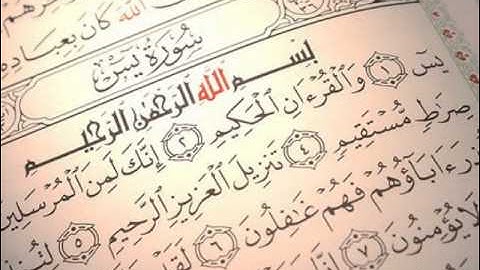 الله كان بعباده
سورة يس
بسم الله الرحمن الرحيم
يسٓ ١ وَالْقُرْءَانِ الْحَكِيمِ ٢ إِنَّكَ لَمِنَ الْمُرْسَلِينَ
صِرَٰطٍ مُّسْتَقِيمٍ ٤ تَنزِيلَ الْعَزِيزِ الرَّحِيمِ ٥ لِتُنذِرَ
ءَابَآؤُهُمْ فَهُمْ غَٰفِلُونَ ٦ لَقَدْ
لَا يُؤْمِنُونَ ٧ إِنَّا